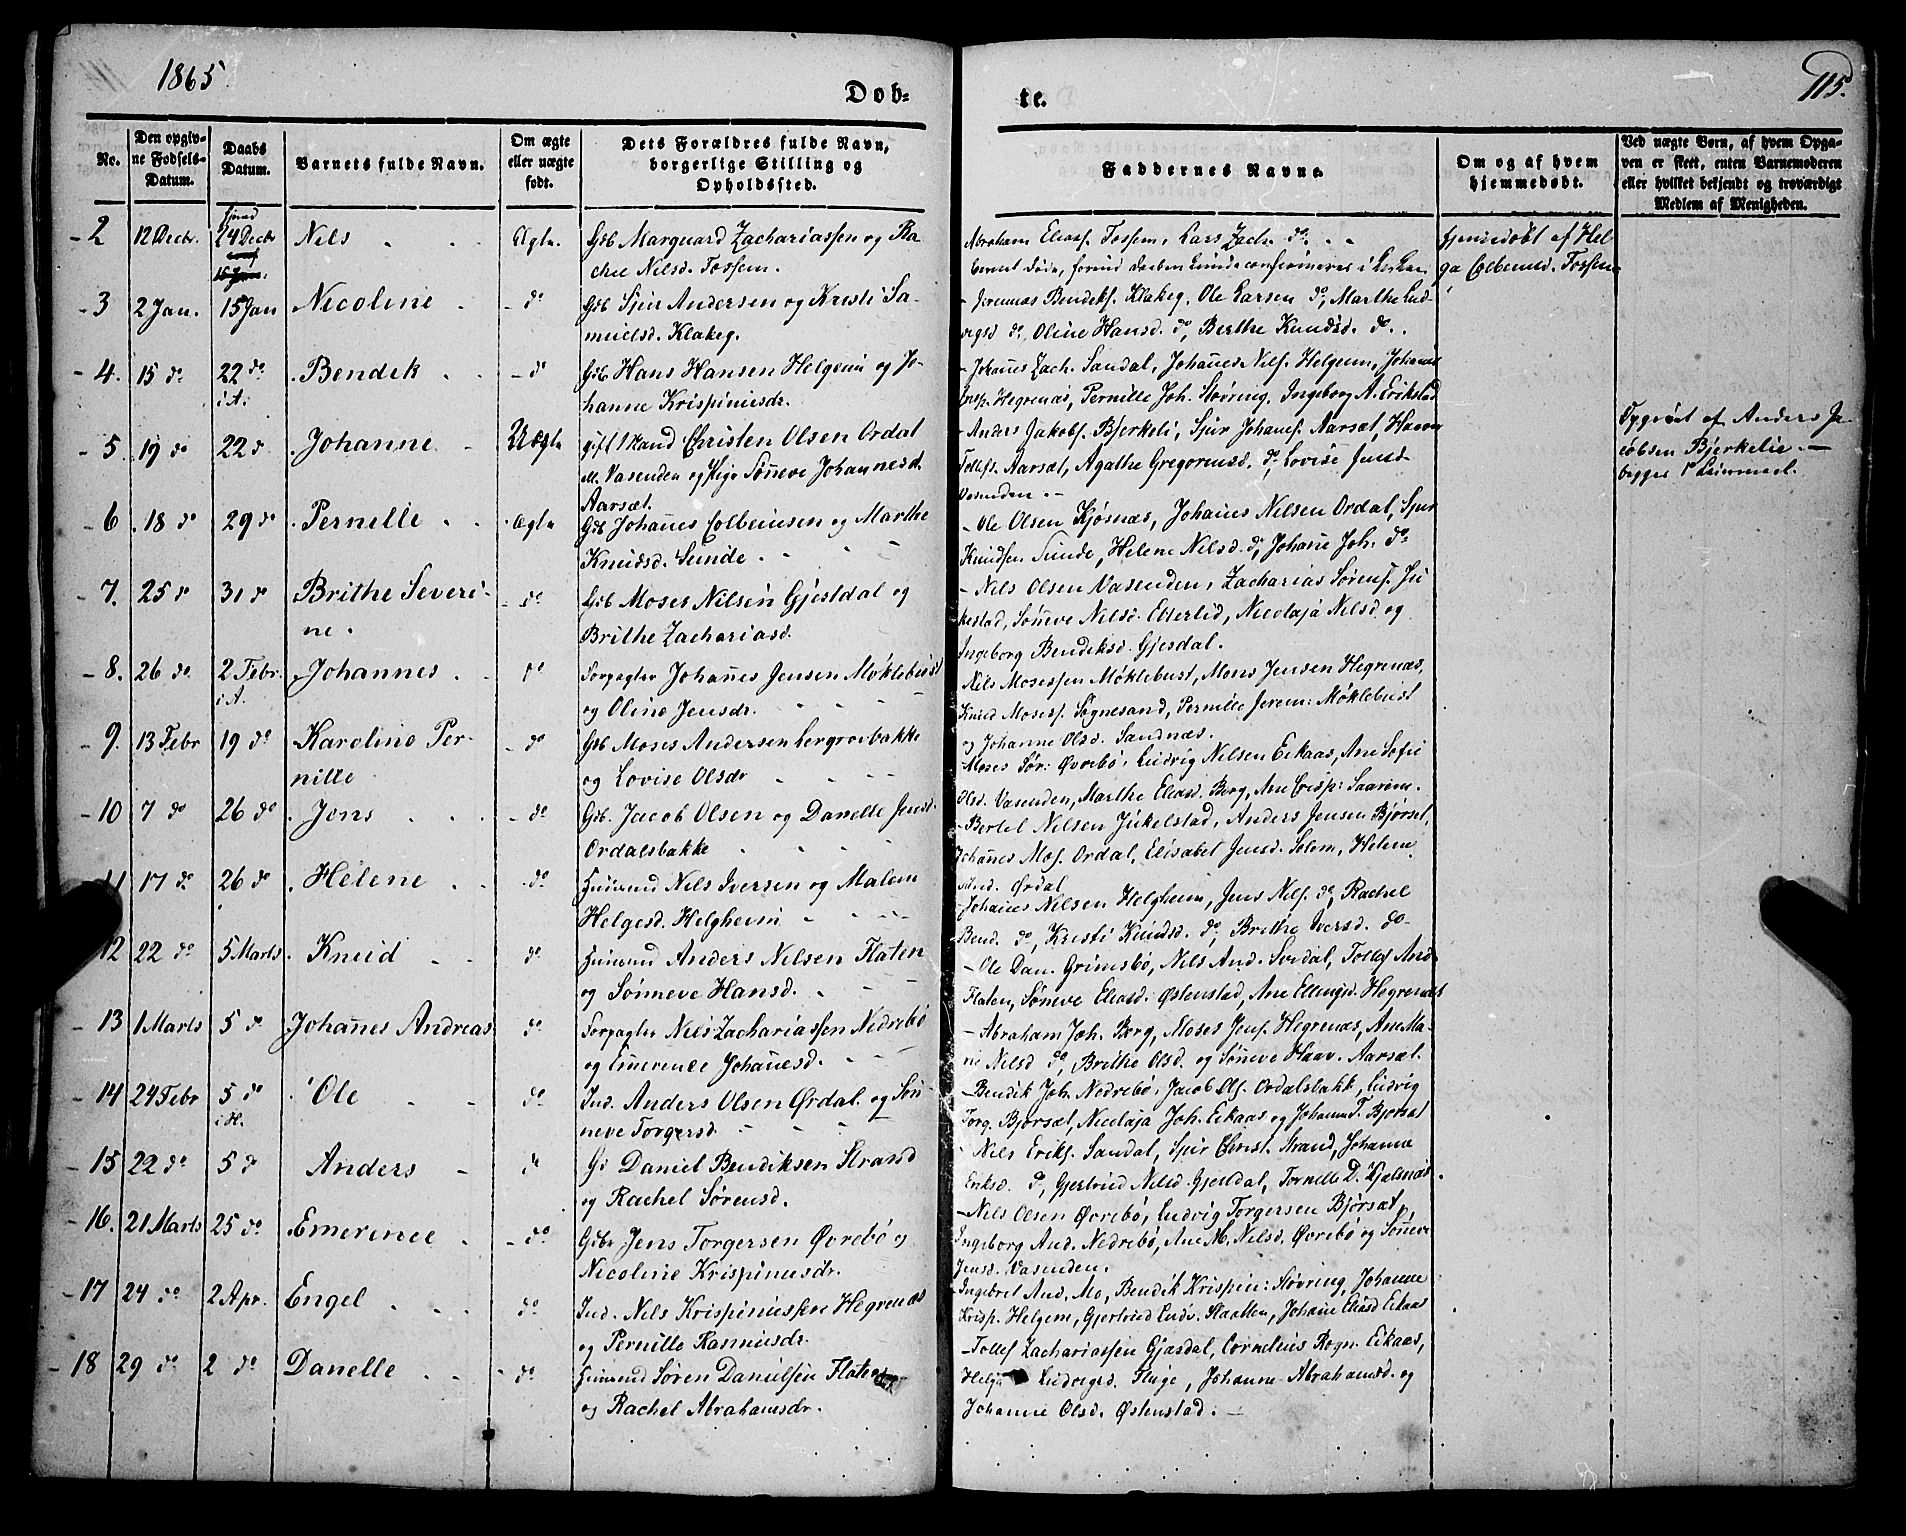 1865
Dob-
te.
115.
No.
Den opgiv-
ne Fødsels-
Datum.
Daabs
Datum.
Barnets fulde Navn.
Om ægte
eller uægte
født.
Dets Forældres fulde Navn,
borgerlige Stilling og
Opholdssted.
Faddernes Navne.
Om og af hvem
hjemmedøbt.
Ved uægte Børn, af hvem Opga-
ven er skett, enten Barnemoderen
eller hvilket bekjendt og troværdigt
Medlem af Menigheden.
2 12 Decbr. 24 Decbr 15 Jan. Nils Ægte. Gdb Marquard Zachariassen og Ra-
chel Nilsd. Fossem.
Abraham Eliass. Fossem, Lars Zach. do
Barnet døde, forend Daaben kunde confirmeres i Kirken
hjemmedøbt af Hel-
ga Colbeinsd. Fossem
3 2 Jan. 15 Jan Nicoline do Gdb Sjur Andersen og Kristi Sa-
muelsd. Klakeg.
Jeremias Bendiks. Klakeg, Ole Larsen do, Marthe Lud-
vigsd do, Oline Hansd. do, Berthe Knudsd. do.
4. 15 do 22 do i A. Bendik do Gdb Hans Hansen Helgem og Jo-
hanne Krispinusdr.
Johanes Zach. Sandal, Johanes Nils. Helgem, Johanes
Krisp. Hegrenæs, Pernille Joh. Støvring, Ingeborg A. Erikstad
5. 19 do 22 d Johanne Uægte gift Mand Christen Olsen Ordal
Vasenden og Pige Sønneve Johannesd.
Aarsæt.
Anders Jakobs. Bjerkeli, Sjur Johans. Aarsæt, Haavar
Tollefs. Aarsæt, Agathe Gregoriusd. do, Lovise Jensd.
Vasenden.
Opgivet af Anders Ja-
cobsen Bjerkelie
begges 1ste Leiermaal.
6 18 do 29 do Pernille ægte Gdb Johanes Colbeinsen og Marthe
Knudsd. Sunde
Ole Olsen Kjøsnæs, Johanes Nilsen Ordal, Sjur
Knudsen Sunde, Helene Nilsd. do, Johane Joh. do
7. 25 d 31 d Brithe Severi-
ne. do Gdb Moses Nilsen Gjesdal og
Brithe Zachariasd.
Nils Olsen Vasenden, Zacharias Sørens. Ju-
kelstad, Sønneve Nilsd. Etterlid, Nicolaja Nilsd og
Ingeborg Bendiksd. Gjesdal.
8. 26 do 2 Febr. i A. Johannes do Forpagter Johanes Jensen Møklebust
og Oline Jensdr.
Nils Mosessen Møklebust, Mons Jensen Hegrenæs,
Knud Moses. Søgnesand, Pernille Jerem: Møklebust
og Johanne Olsd. Sandnæs.
9. 13 Febr 19 do Karoline Per-
nille do Gdb Moses Andersen Lergrovbakke
og Lovise Olsdr
Moses Sør: Øvrebø, Ludvig Nilsen Eikaas, Ane Sofie
Olsd. Vasenden, Marthe Eliasd. Berg, Ane Crisp:
10 7 do 26 do Jens do Gdb. Jacob Olsen og Danelle Jensd.
Ordalsbakke
Bertel Nilsen Jukelstad, Anders Jensen Bjørset,
Johanes Mos. Ordal, Elisabet Jensd. Solem, Helene
And. Ørdal
11 17 do 26 do Helene do Huusmd Nils Iversen og Malene
Helgesd. Helgheim
Johanes Nilsen Helgheim, Jens Nils. do, Rachel
Bend. do, Kristi Knudsd. do, Brithe Iversd. do
12 22 do 5 Marts Knud do Huusmd Anders Nilsen Flaten
og Sønneve Hansd.
Ole Dan. Grimsbø, Nils And. Svidal, Tollef And.
Flaten, Søneve Eliasd. Østenstad, Ane Ellingsd. Hegrenæs
13 1 Marts 5 d Johanes Andreas do Forpagter Nils Zachariassen Nedrebø
og Emerence Johanesd.
Abraham Joh. Berg, Moses Jens. Hegrenæs, Ane Ma-
rie Nilsd do, Brithe Olsd. og Sønneve Haav. Aarsæt.
14 24 Febr 5 do i H. Ole do Ind. Anders Olsen Ørdal og Søn-
neve Torgersd
Bendik Joh. Nedrebø, Jacob Ols. Ordalsbakk, Ludvig
Torg. Bjørsæt, Nicolaja Joh. Eikaas og Johanne T. Bjørsæt
15 22 do 5 d Anders do Gb Daniel Bendiksen Strand
og Rachel Sørensd.
Nils Eriks. Sandal, Sjur Christ. Strand, Johanne
Eriksd. do, Gjertrud Nilsd Gjesdal, Pernille D. Kjøsnæs
16. 21 Marts 25 do Emerence do Gdbr Jens Torgersen Øvrebø og
Nicoline Krispinusdr.
Nils Olsen Øvrebø, Ludvig Torgersen Bjørsæt,
Ingeborg And. Nedrebø, Ane M. Nilsd. Øvrebø og Sønneve
Jensd. Vasenden.
17 24 do 2 Apr. Engel do Ind. Nils Krispinussen Hegrenæs
og Pernille Rasmusdr.
Ingebret And. Mo, Bendik Krispin: Støvring, Johanne
Krisp. Helgem, Gjertrud Ludv. Slaatten, Johane Eliasd Eikaas
18 29 do 2 do Danelle do Huusmd Søren Danielsen Flaten
og Rachel Abrahamsdr.
Tollef Zachariassen Gjesdal, Cornelius Rogn. Eikaas,
Helga Ludvigsd. Fluge, Johanne Abrahamsd. og
Johanne Olsd. Østenstad.